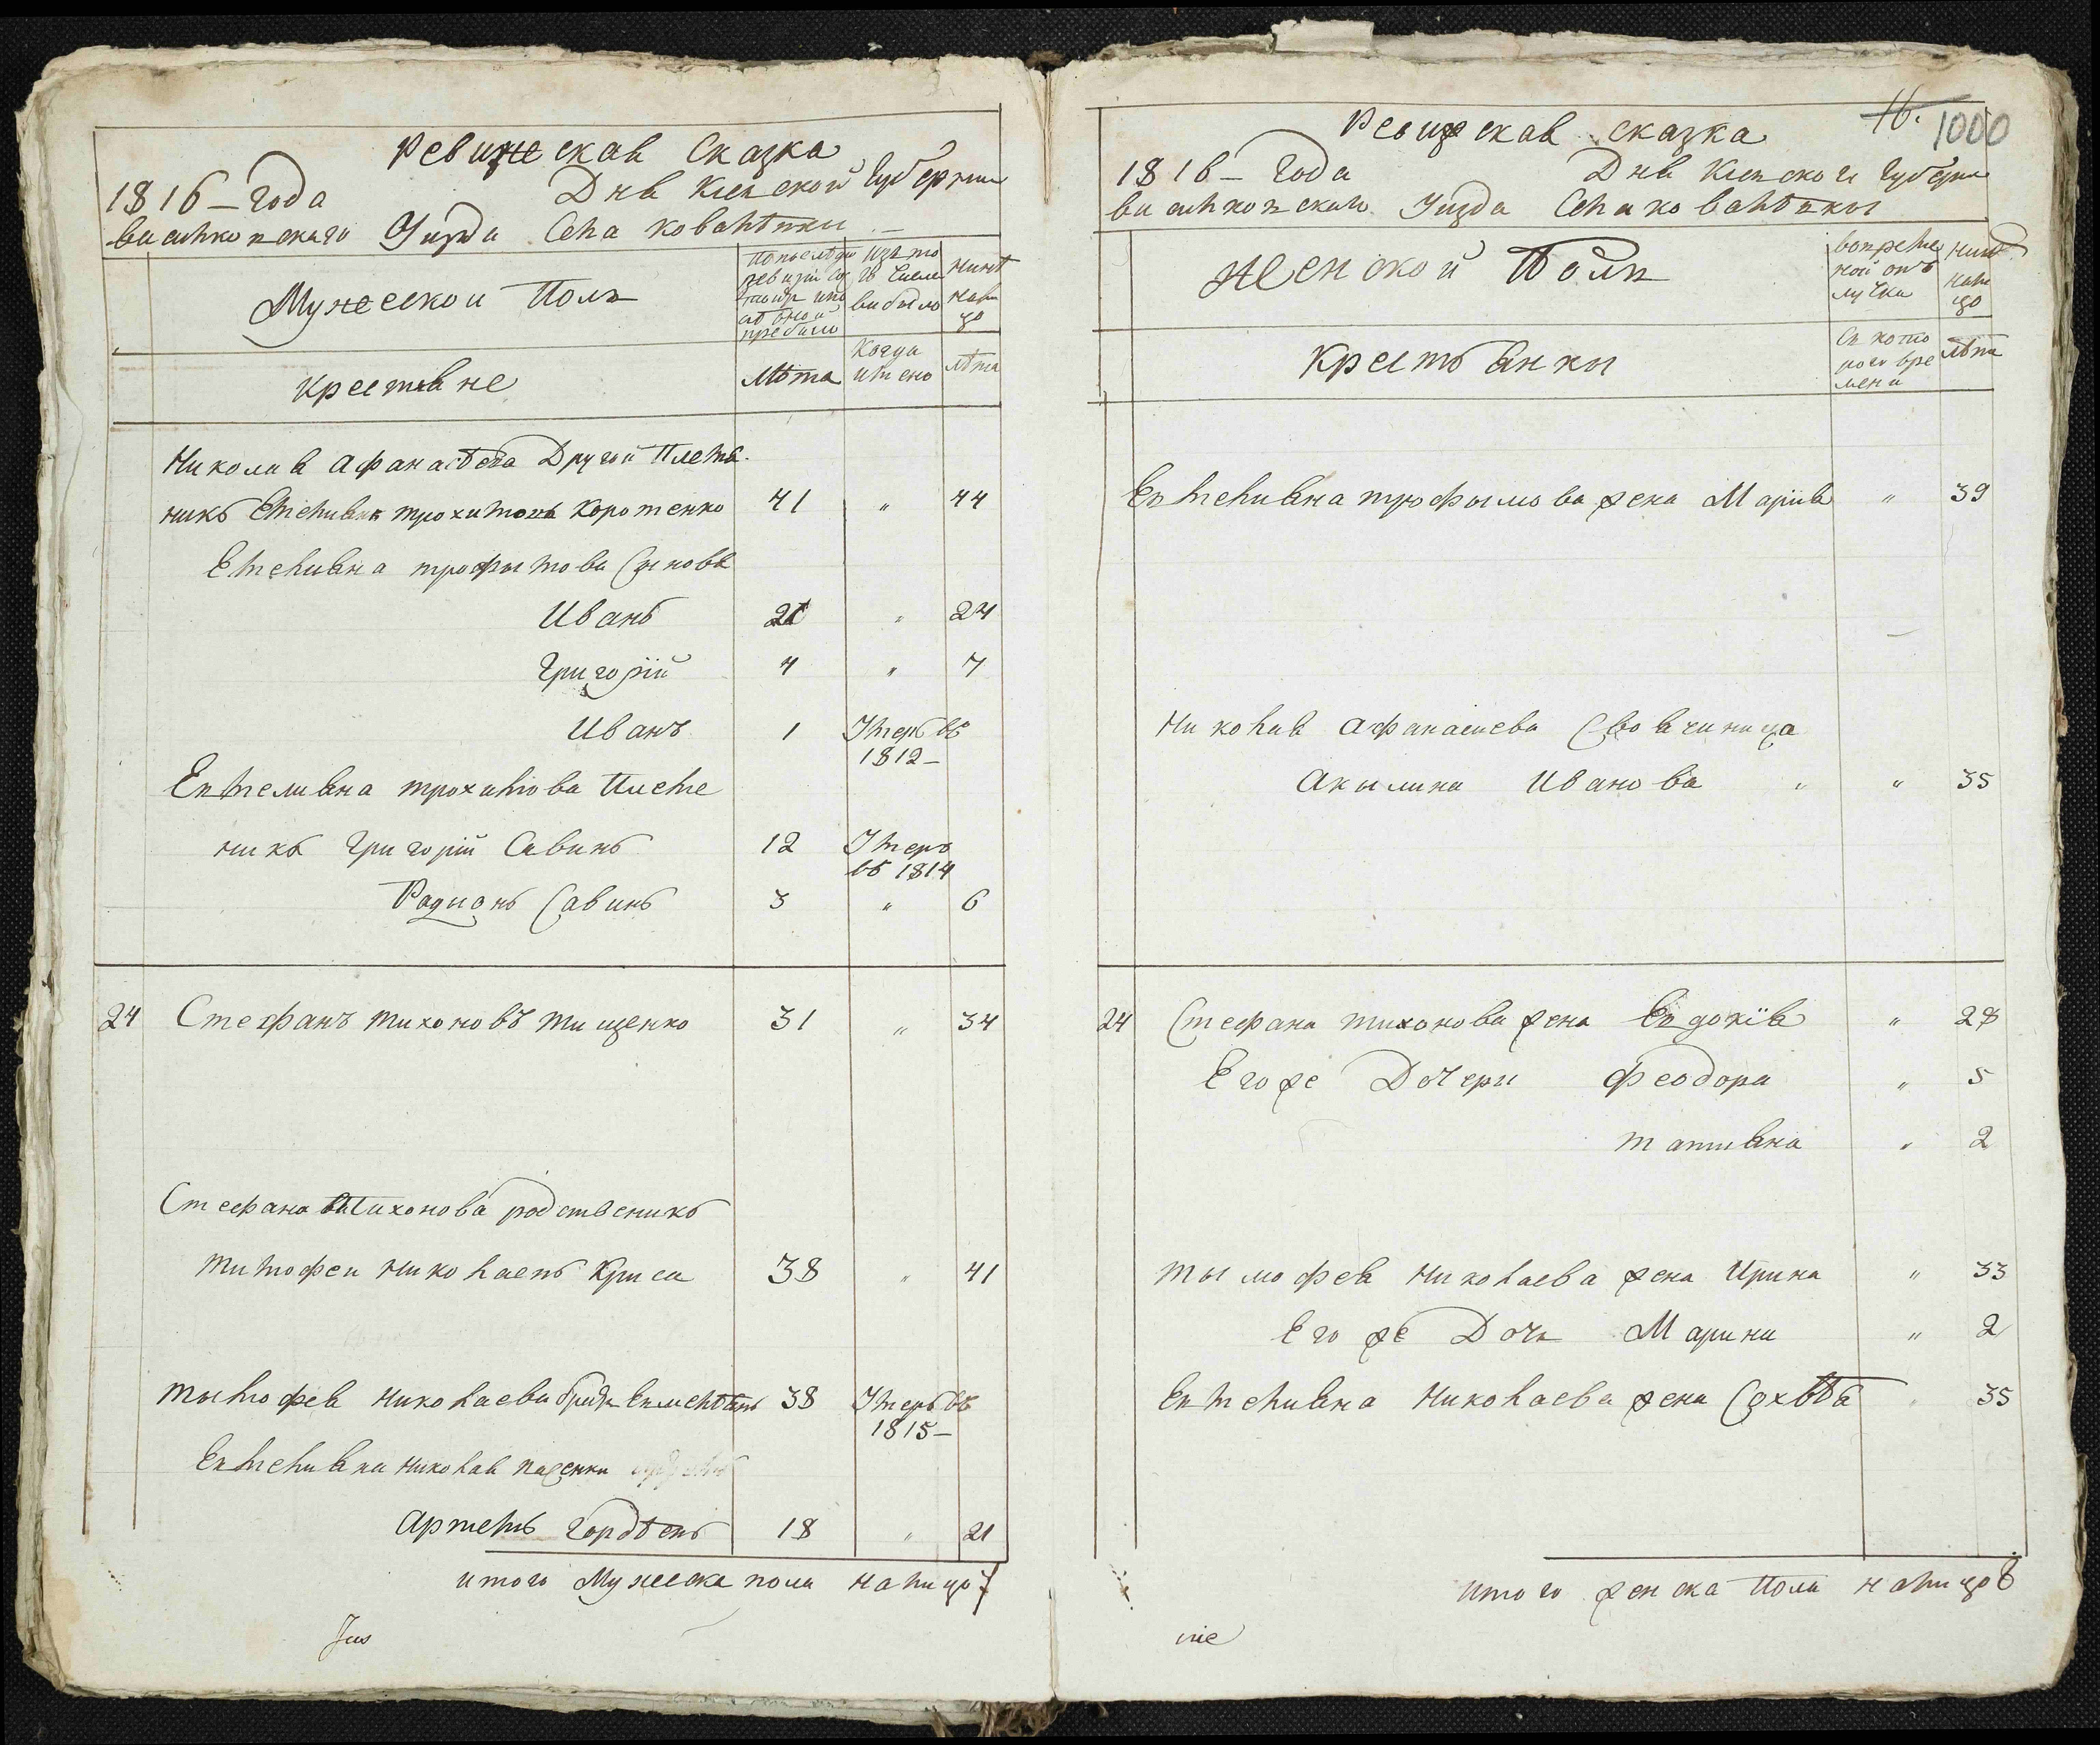 Ревизская Сказка
1816 – года Дня Киевской Губернии
васильковскаго Уизда Села ковалѣвки
Мужескои Полъ
По последней ревизіи состояло и после оной прибыло
Изъ того числа выбыло
Нынѣ налицо
крестьяне
Лѣта
Когда имено
лѣта
Николая Афанасіева Другой Племя-
никъ Емелиянъ трохимовъ Коротенко 41 " 44
Емелияна трофымова Сыновя
Иванъ 21 " 24
Григорій 4 " 7
Иванъ 1 Умеръ въ
1812 –
Емелияна трохимова Племе
никъ Григорій Савинъ 12 Умеръ
въ 1814
Радионъ Савинъ 3 " 6
24 Стефанъ тихоновъ тищенко 31 " 34
Стефана Тихонова родственикъ
тимофеи николаевъ Криса 38 " 41
тымофея николаева братъ Емелѣянъ 38 Умеръ въ
1815 –
Емелияна николая пасенки
Артемъ Гордѣевъ 18 " 21
итого Мужеска пола налицо 7
Jus
16.
1000
Ревизская сказка
1816 – Года Дня Киевской Губерни
васильковскаго Уизда Села ковалѣвки
Женской Полъ
во времен
ной от
лучки
Нинѣ
нали
цо
Крестьянки
Съ кото
рого вре
мени
лѣта
Емелияна трофымова жена Мария " 39
Николая Афанасиева Своячиница
Акылина Иванова " " 35
24 Стефана тихонова жена Евдокія " 28
Егоже Дочери Феодора " 5
татияна " 2
тымофея Николаева жена Ирина " 33
Его же Дочь Марина " 2
Емелияна Николаева жена Софѣя " 35
итого женска Пола налицо 8
nie